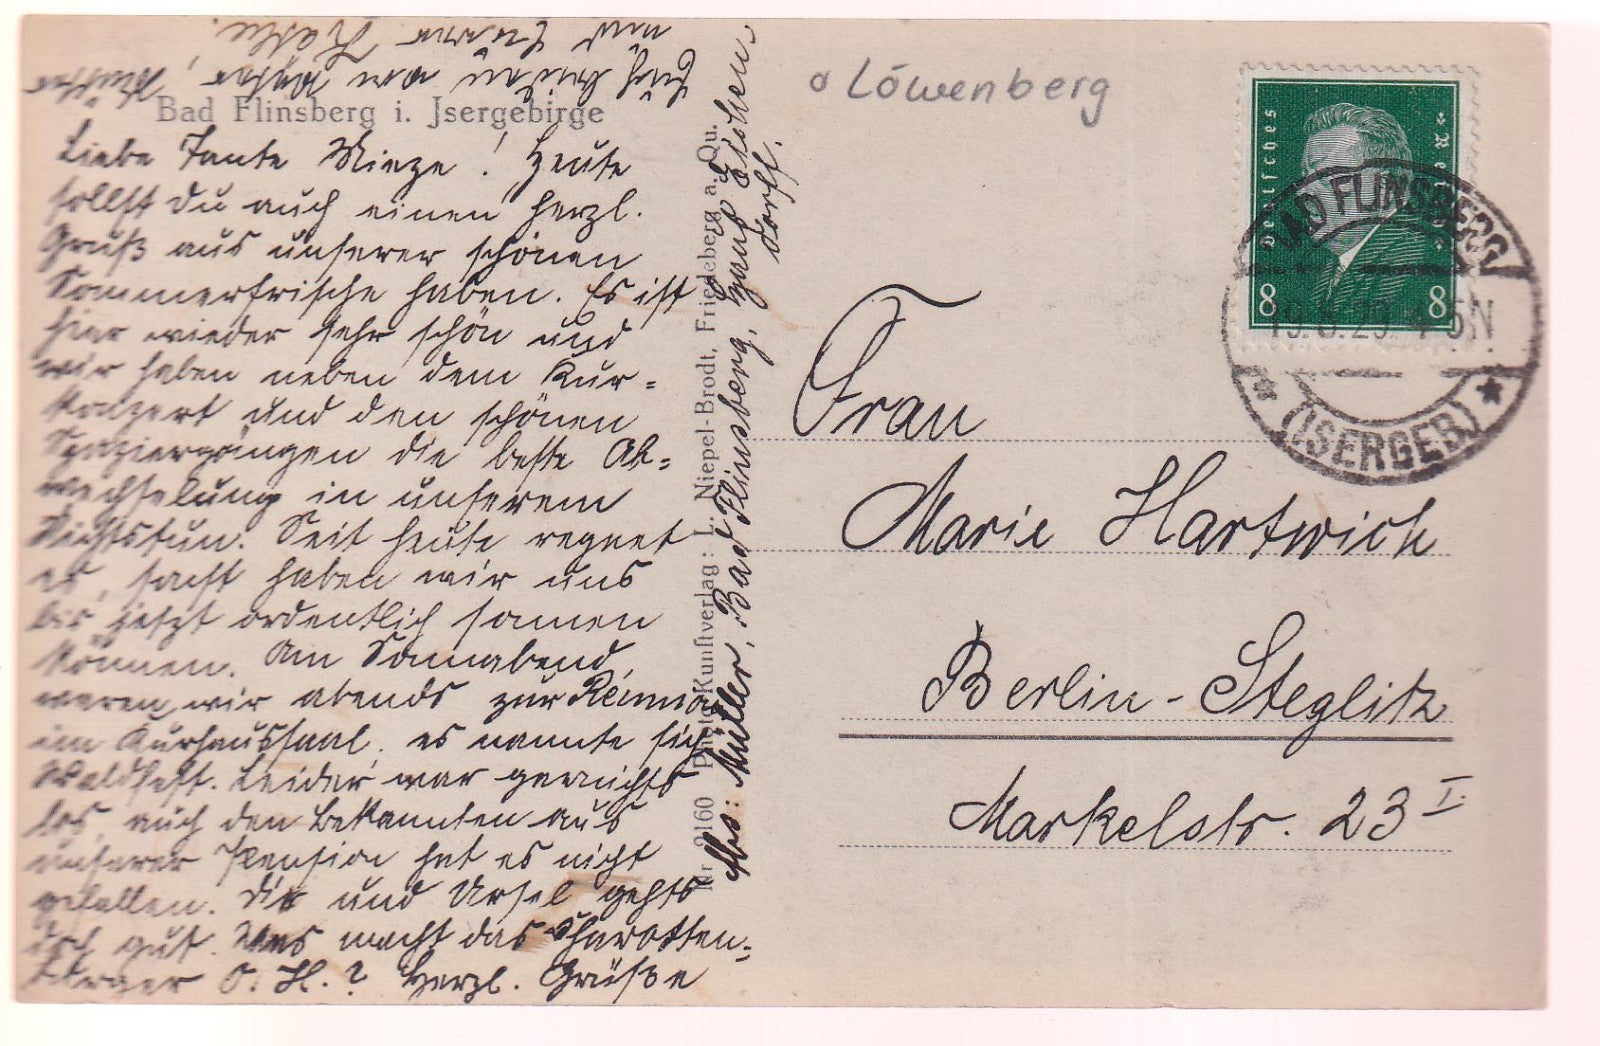 Bad Flinsberg i. Jsergebirge
Liebe Tante Mieze! Heute
sollst Du auch einen herzl.
Gruß aus unserer schönen
Sommerfrische haben. Es ist
hier wieder sehr schön und
wir haben neben dem Kur=
konzert und den schönen
Spaziergängen die beste Ab=
wechselung in unserem
Nichtstun. Seit heute regnet
es, sonst haben wir uns
bis jetzt ordentlich sonnen
können. Am Sonnabend
waren wir abends zur Réunion
im Kurhaussaal, es nannte sich
Waldfest. Leider war gar nichts
los, auch den Bekannten aus
unserer Pension hat es nicht
gefallen. Dir und Ursel gehts
doch gut. Was macht das Charlotten=
burger O. H.? Herzl. Grüße
Euch beiden von
und Käthe.
Nr 9160 Photo-Kunstverlag: L. Niepel-Brodt, Friedeberg a. Qu.
Abs: Müller, Bad Flinsberg, Haus Eichen
dorff.
Löwenberg
Deutsches Reich
8 8
BAD FLINSBERG
(ISERGEB)
Frau
Marie Hartwich
Berlin-Steglitz
Markelstr. 23 I.